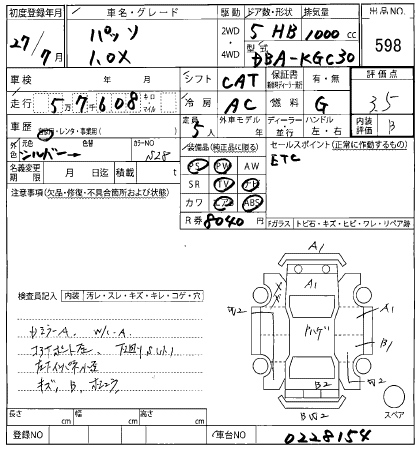 初度登録年月 車名・グレード 駆動 ドア数・形状 排気量 出品NO
27/7月 パッソ 2WD 5 HB 1000 cc 598
1.0X 4WD 型式 DBA-KGC30
車検 年 月 シフト CAT 保証書 有・無 評価点
走行 5万7千608 キロ マイル 冷房 AC 燃料 G 3.5
車歴 自家用・レンタ・事業用( ) 定員 5人 外車モデル ディーラー・並行 ハンドル 左・右 内装評価 B
外色 元色 シルバー 色替 カラーNO S28 装備品(純正品に限る) セールスポイント(正常に作動するもの)
名義変更期限 月 日 積載 t PS PW AW ETC
注意事項(欠品・修復・不具合箇所および状態) SR TV ナビ
カワ エアB ABS
R券 8040 円 Fガラス トビ石・キズ・ヒビ・ワレ・リペア跡
A1
A1
検査員記入 内装 汚レ・スレ・キズ・キレ・コゲ・穴
W2
A1
ドハゲ
B1
W2
キズ、B、
B2
BW2
スペア
長さ cm 幅 cm 高さ cm
登録NO 車台NO 0228154